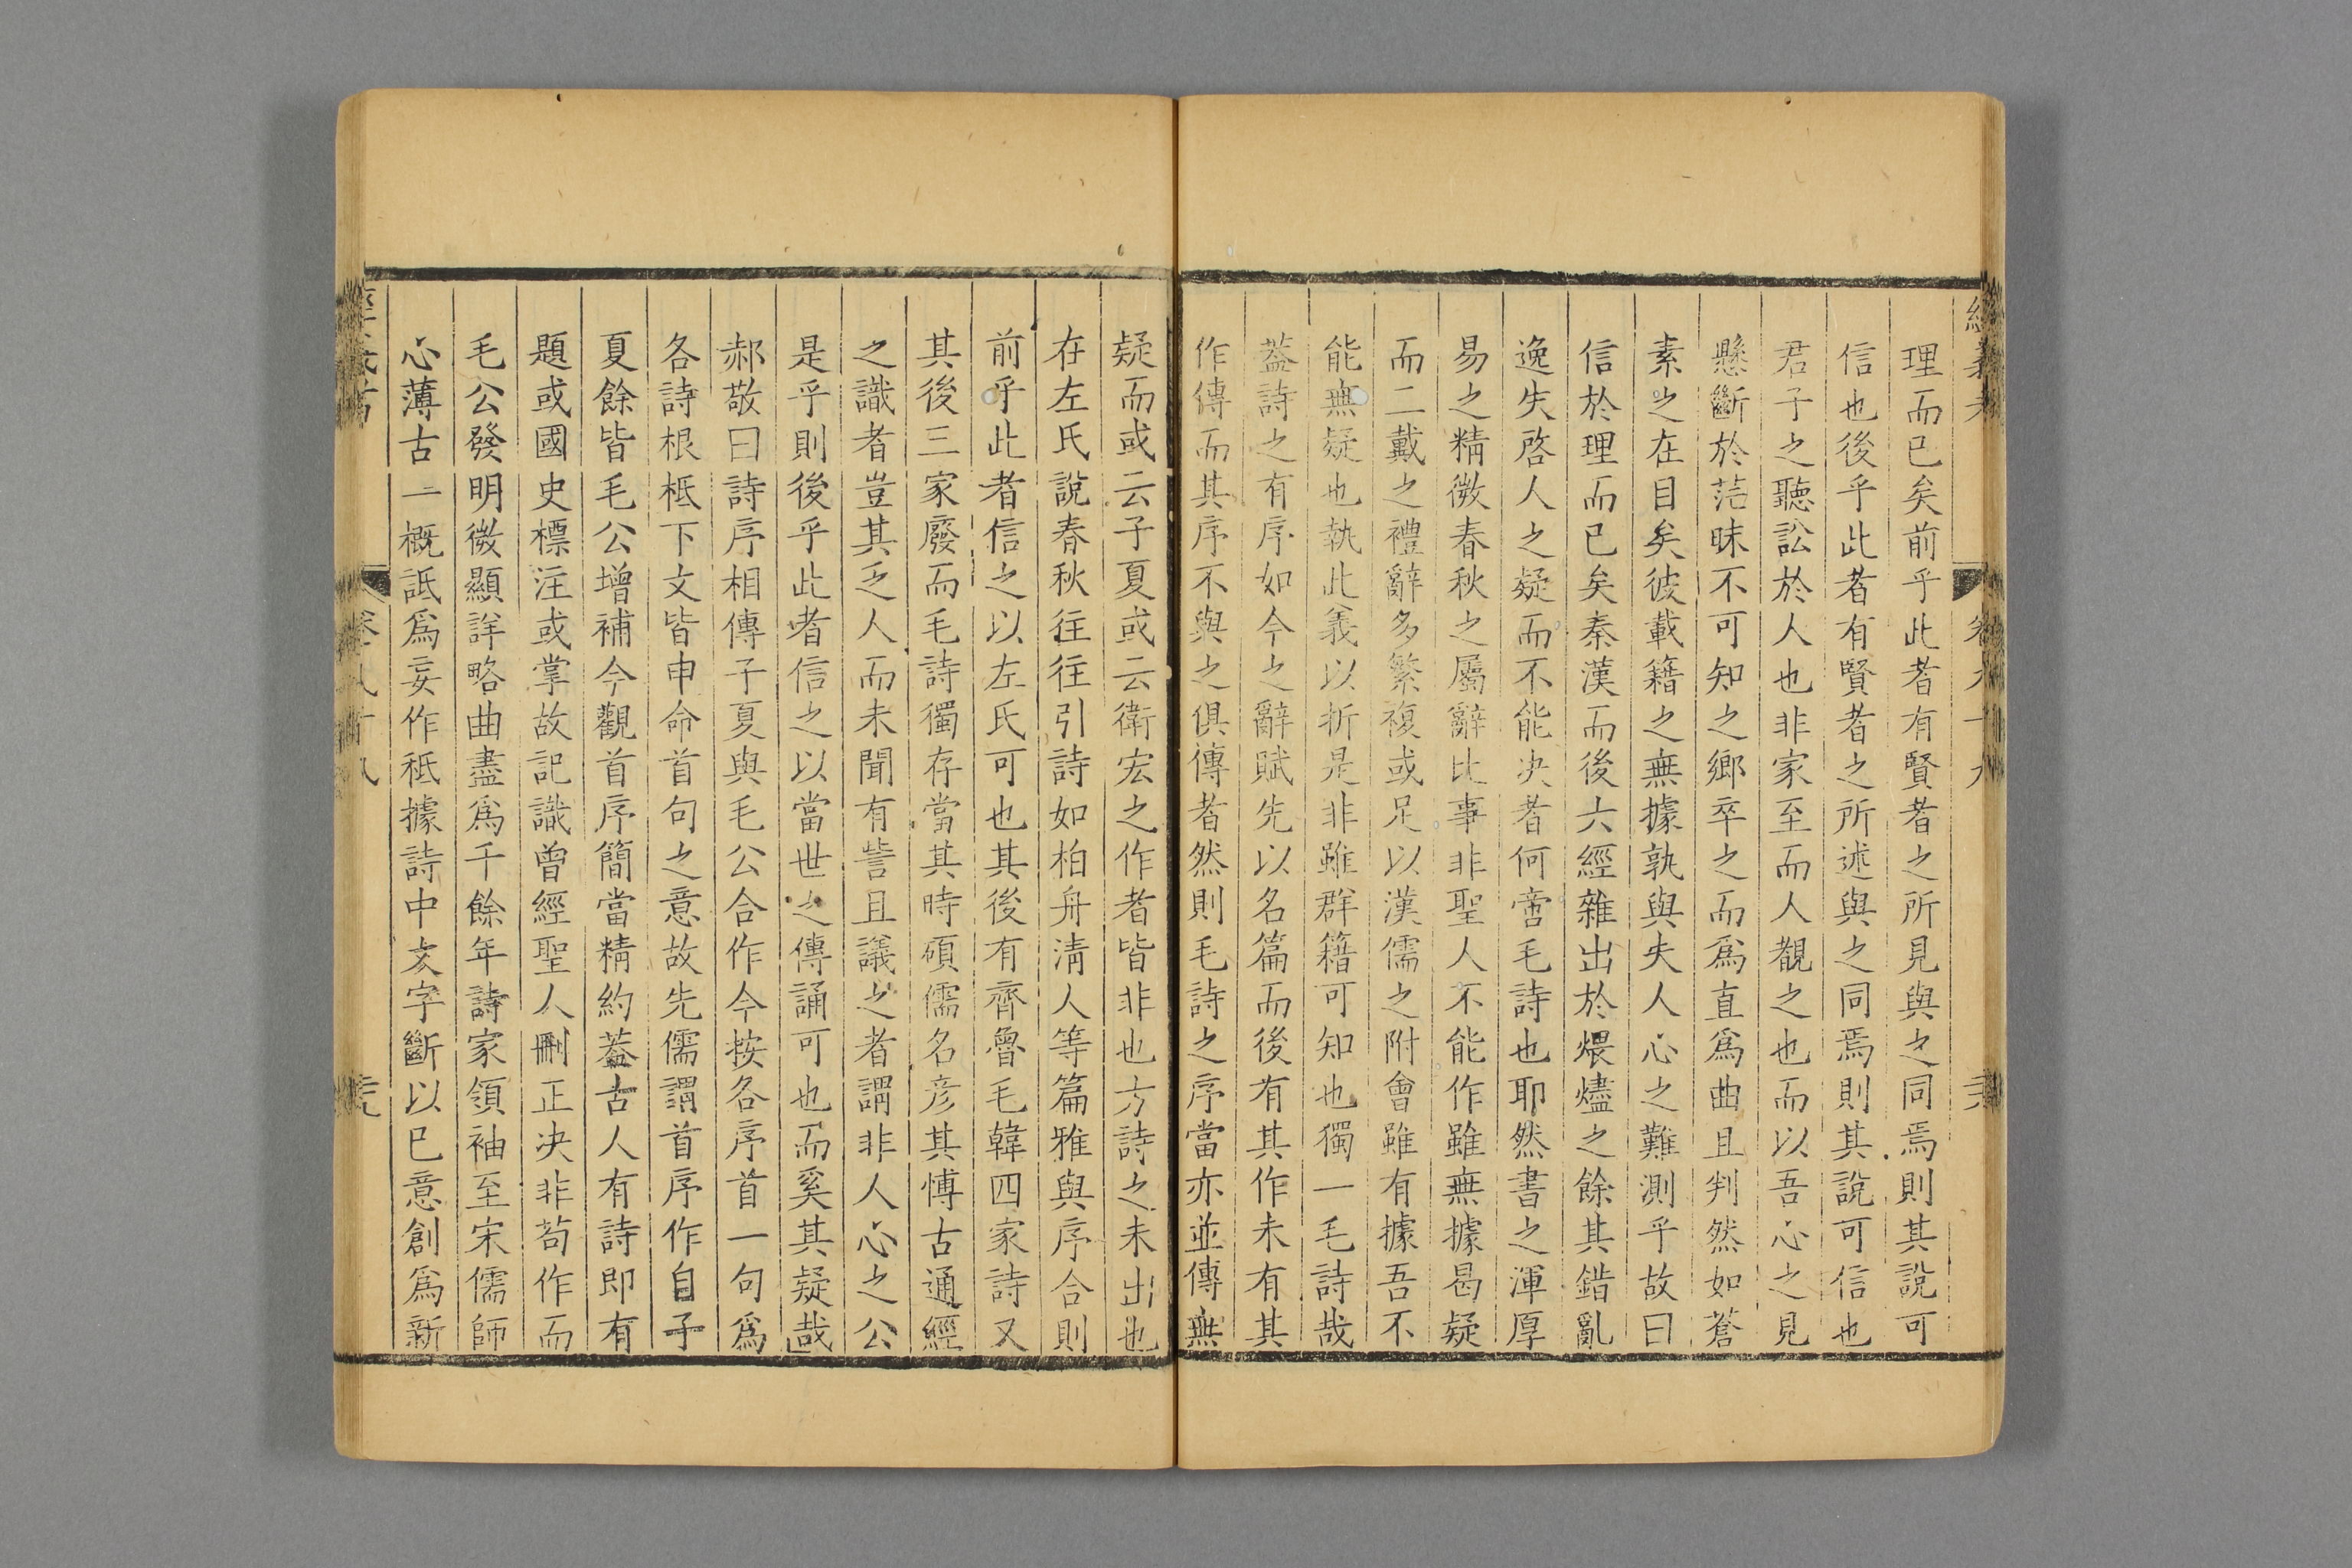 理而已矣前乎此者有賢者之所見與之同焉則其說可
信也後乎此者有賢者之所述與之同焉則其說可信也
君子之聽訟於人也非家至而人覩之也而以吾心之見
懸斷於茫昧不可知之鄉卒之而爲直爲曲且判然如蒼
素之在目矣彼載籍之無據孰與夫人心之難測乎故曰
信於理而已矣秦漢而後六經雜出於煨燼之餘其錯亂
逸失啓人之疑而不能决者何啻毛詩也耶然書之渾厚
易之精微春秋之屬辭比事非聖人不能作雖無據曷疑
而二戴之禮辭多繁複或足以漢儒之附會雖有據吾不
能無疑也執此義以折是非雖群籍可知也獨一毛詩哉
蓋詩之有序如今之辭賦先以名篇而後有其作未有其
作傳而其序不與之俱傳者然則毛詩之序當亦並傳無
疑而或云子夏或云衛宏之作者皆非也方詩之未出也
在左氏說春秋往往引詩如柏舟淸人等篇雅與序合則
前乎此者信之以左氏可也其後有齊魯毛韓四家詩又
其後三家廢而毛詩獨存當其時碩儒名彦其愽古通經
之識者豈其乏人而未聞有訾且議之者謂非人心之公
是乎則後乎此者信之以當世之傳誦可也而奚其疑哉
郝敬曰詩序相傳子夏與毛公合作今按各序首一句爲
各詩根柢下文皆申命首句之意故先儒謂首序作自子
夏餘皆毛公增補今觀首序簡當精約蓋古人有詩即有
題或國史標注或掌故記識曾經聖人刪正决非苟作而
毛公發明微顯詳略曲盡爲千餘年詩家領袖至宋儒師
心薄古一概詆爲妄作秪據詩中文字斷以已意創爲新